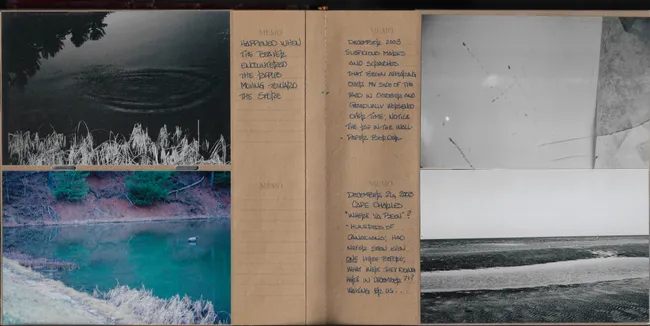 MEMO
HAPPENED WHEN
THE BEAVER
ENCOUNTERED
THE RIPPLE
MOVING TOWARD
THE SHORE
MEMO
MEMO
DECEMBER 2003
SUSPICIOUS MARKS
AND SCRATCHES
THAT BEGAN APPEARING
OVER MY SIDE OF THE
BED IN OCTOBER AND
GRADUALLY WORSENED
OVER TIME, NOTICE
THE IN THE WALL
PAPER BORDER
MEMO
DECEMBER 2003
CAPE CHARLES
"WHERE YA BEEN"?
- HUNDREDS OF
HAD
NEVER SEEN EVEN
ONE HERE BEFORE,
WHAT WERE THEY DOING
HERE IN DECEMBER ?!?
WAITING FOR US....